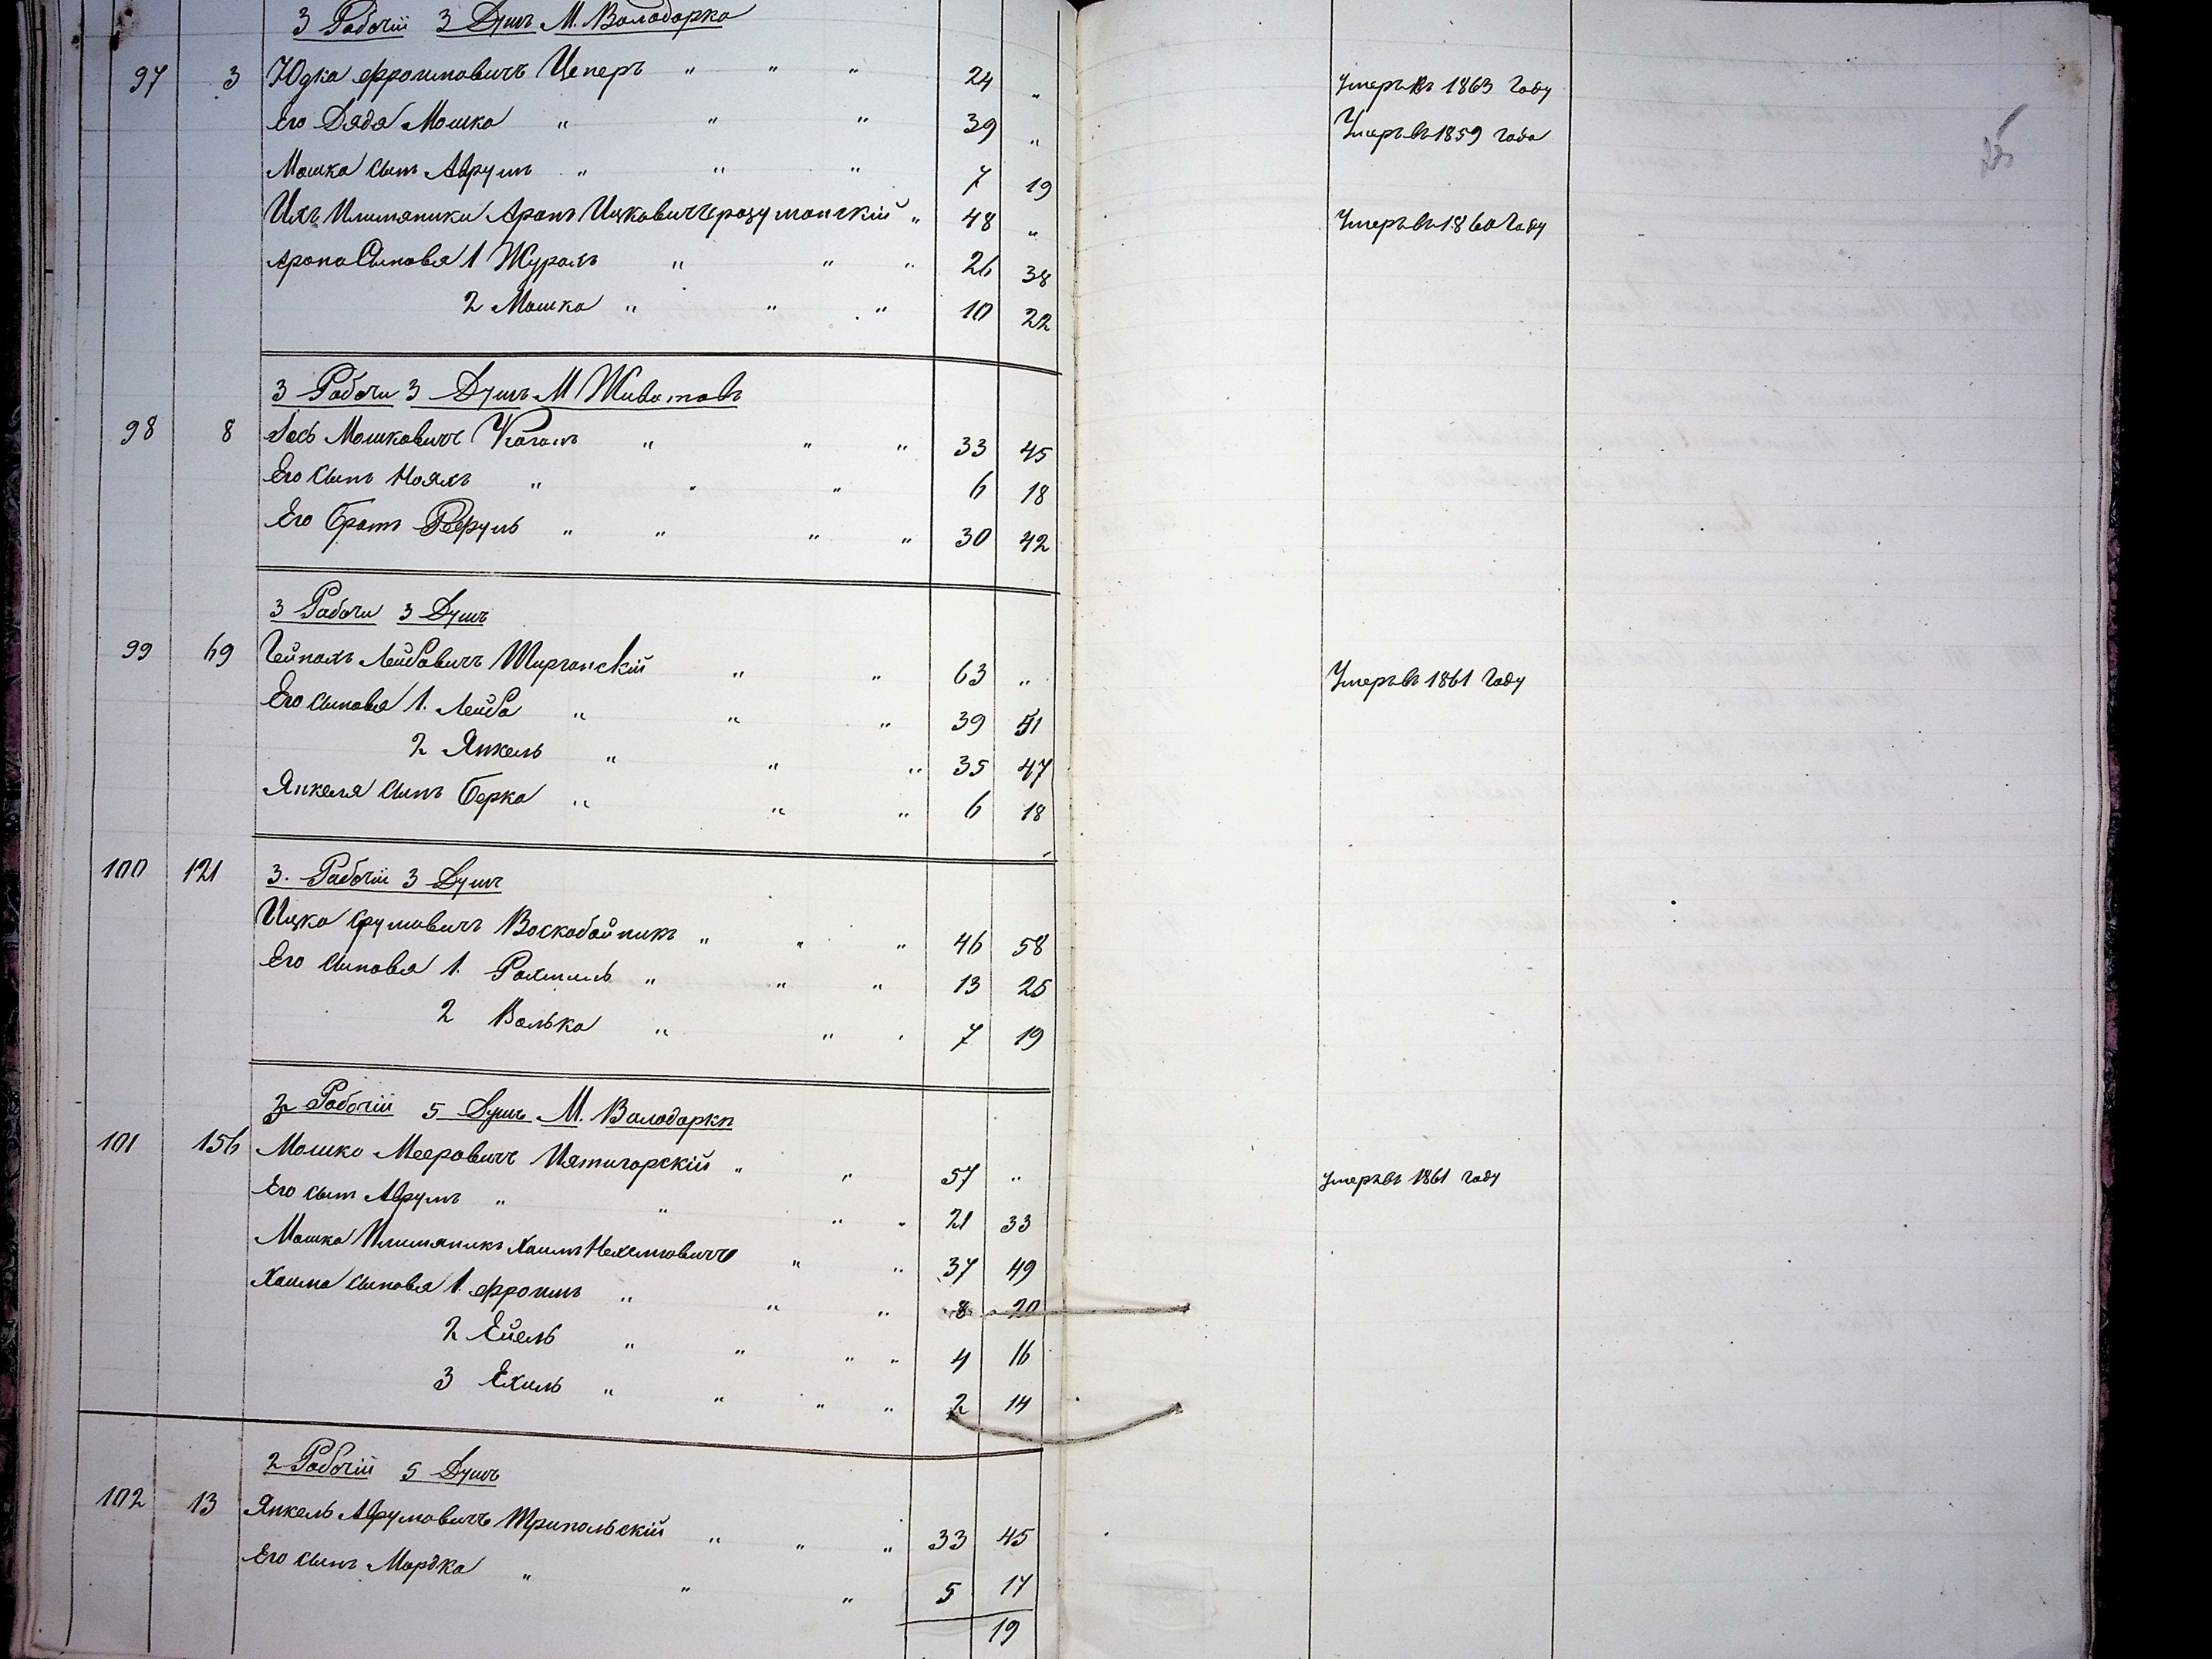 3 Рабочіи 3 Душъ М. Володарка
97 3 Юдка Фроимовичъ Цеперъ " " " 24 " Умеръ въ 1863 Году
Его Дядя Мошко " " " 39 " Умеръ въ 1859 года
Мошка Сынъ Аврумъ " " " 7 19
Ихъ Племяники Аронъ Ицковичъ " 48 " Умеръ въ 1860 Году
Арона Сыновья 1 " " " 26 38
2 Мошко " " " 10 22
3 Рабочи 3 Душъ М Животовъ
98 8 Мошковичъ Коганъ " " " 33 45
Его Сынъ " " " 6 18
Его братъ " " " " 30 42
3 Рабочи 3 Душъ
99 69 Лейбовичъ " " 63 " Умеръ въ 1861 Году
Его Сыновья 1. Лейба " " " 39 51
2 Янкель " " " 35 47
Янкеля Сынъ Берко " " " 6 18
3. Рабочіи 3 Душъ
100 121 Ицко Срумовичъ Воскобойникъ " " " 46 58
Его Сыновья 1. Рахмиль " " " 13 25
2 Волько " " " 7 19
2 Рабочіи 5 Душъ М. Володарки
101 156 Мошко Мееровичъ Пятигорскій " " 57 " Умеръ въ 1861 году
Его сынъ Аврумъ " " " " 21 33
Мошка Племяникъ Хаимъ Нехемовичъ " " 37 49
Хаима Сыновья 1. Фроимъ " " " 8 20
2 " " " " 4 16
3 Ехиль " " " " 2 14
2 Рабочіи 5 Душъ
102 13 Янкель Аврумовичъ Трипольскій " " " 33 45
Его сынъ Мордко " " " 5 17
19